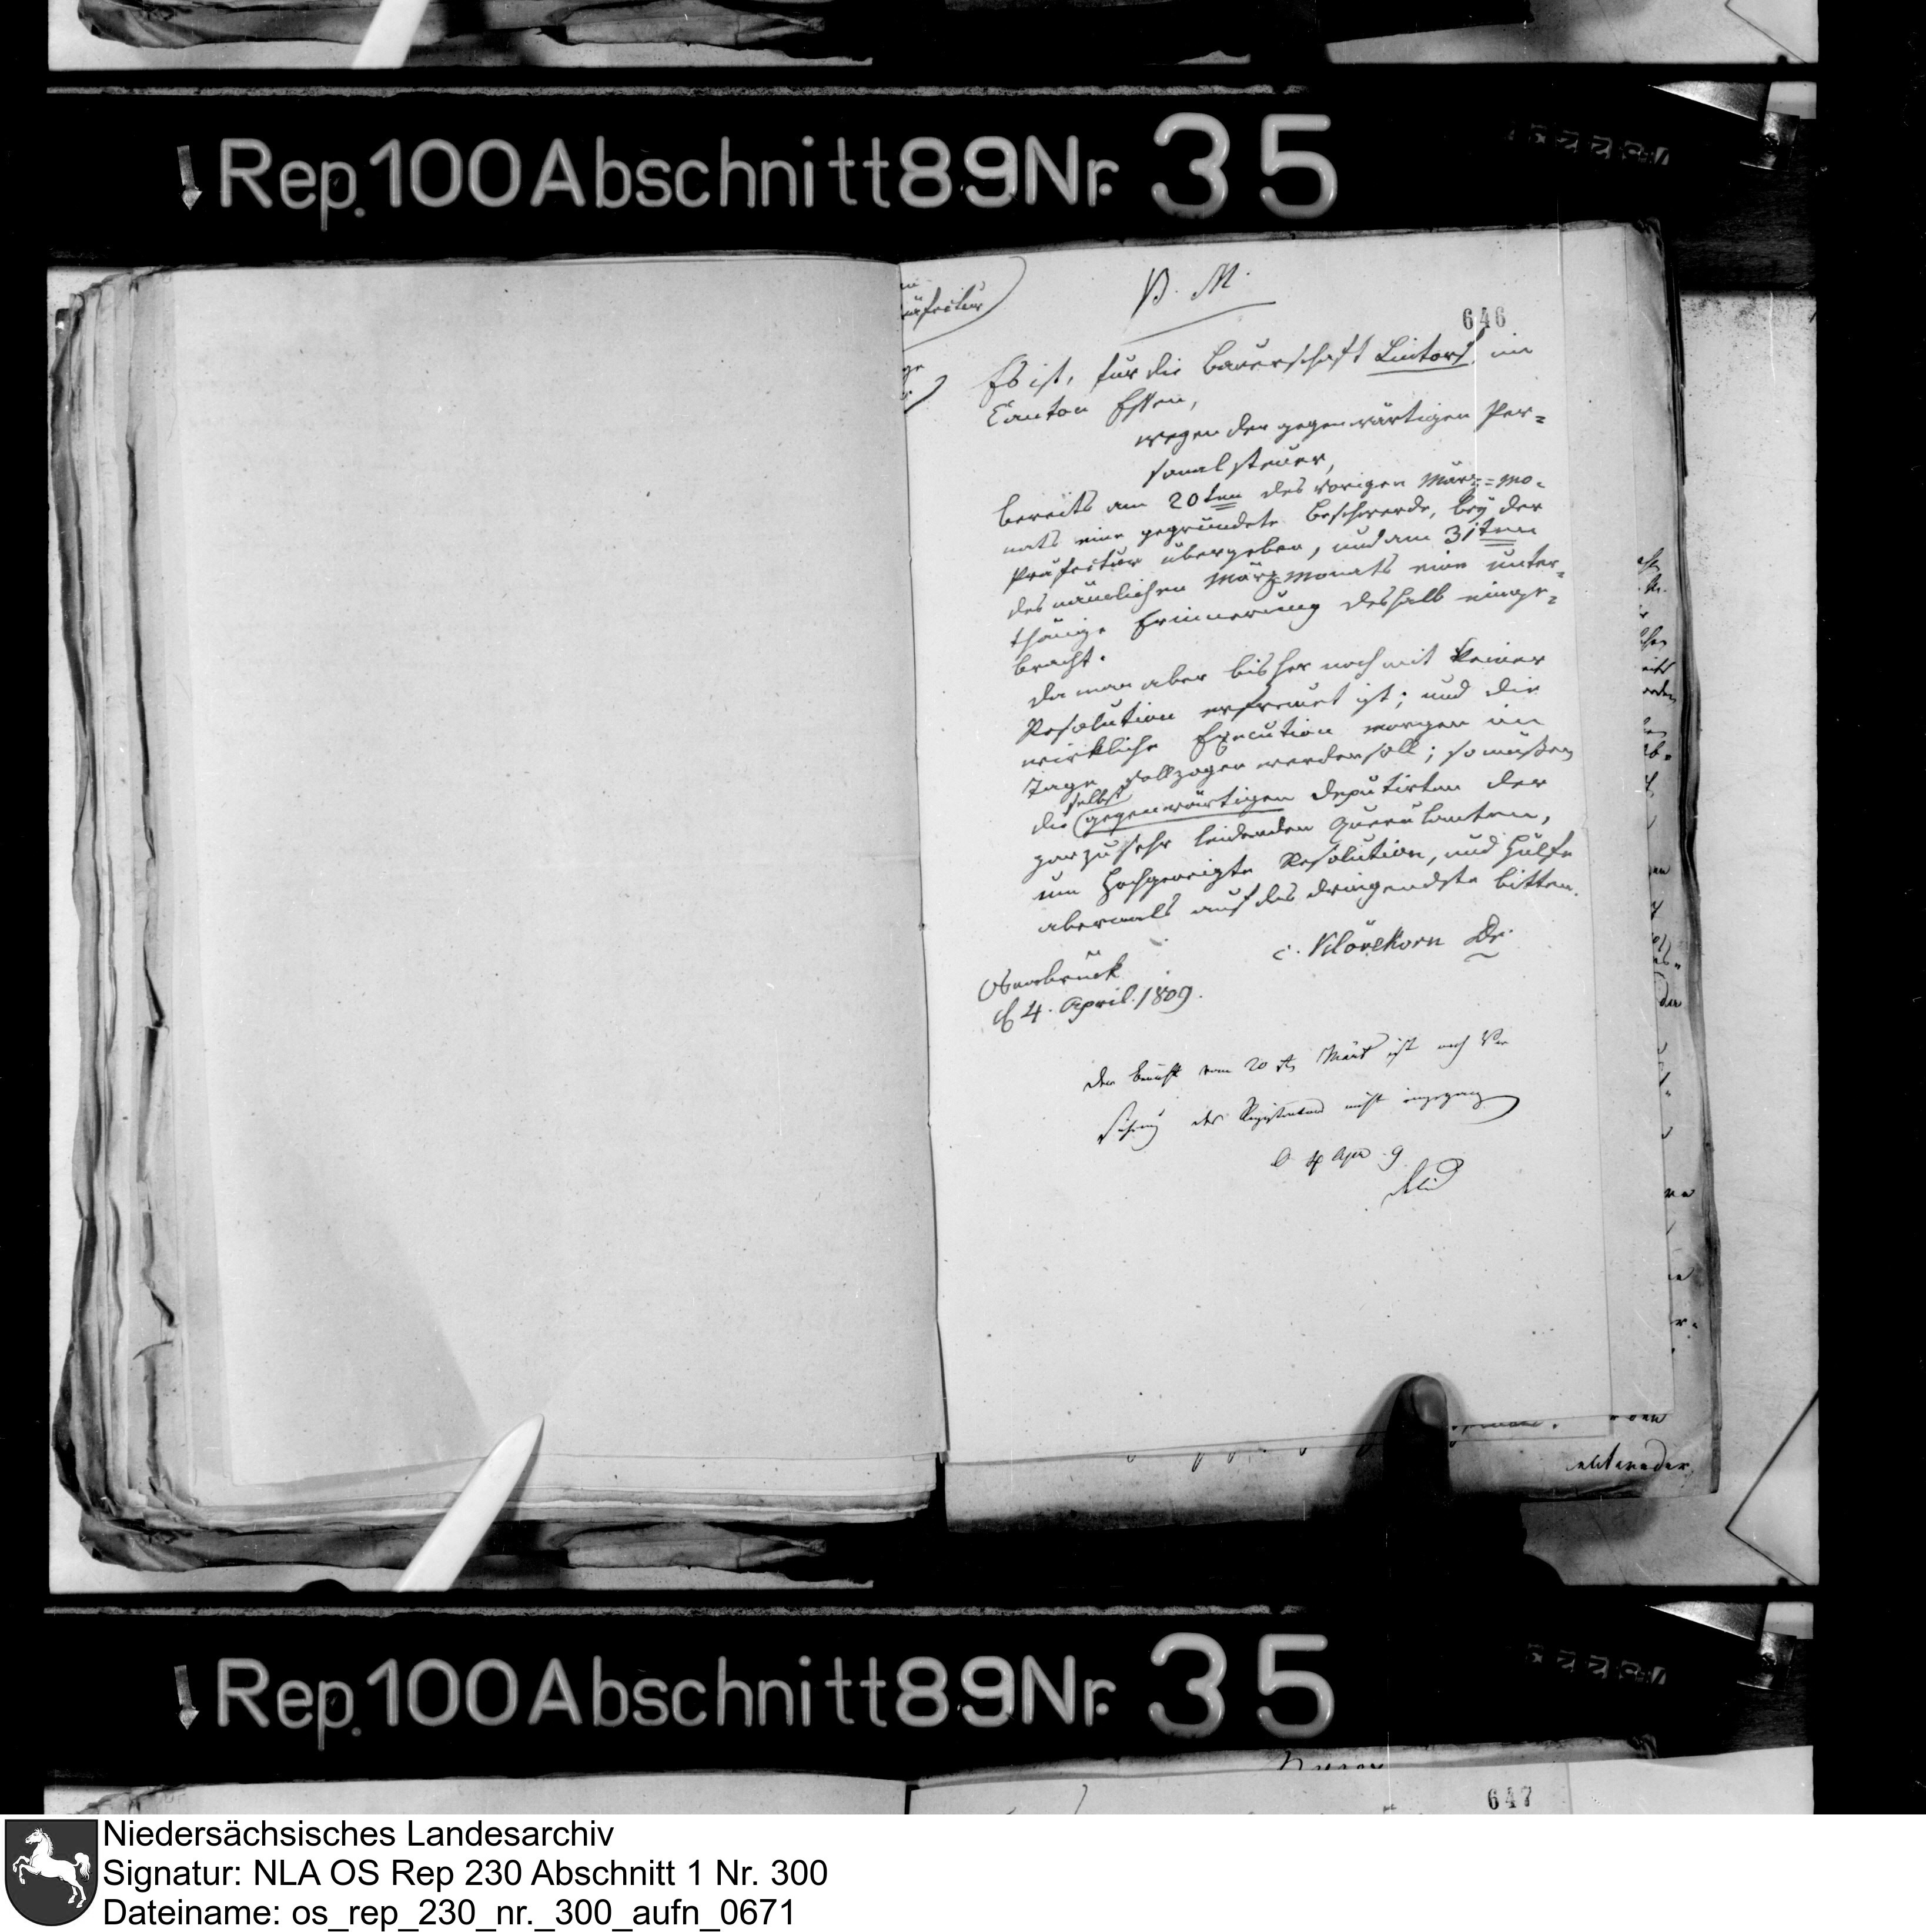 Rep. 100 Abschnitt 89 Nr. 35
P. M.
646
Es ist, für die Bauerschaft Lintorf, im
Canton Essen,
wegen der gegenwärtigen Per=
sonal steuer,
bereits am 20ten des vorigen März=Mo=
nats eine gegründete Beschwerde, bey der
Präfectur übergeben, und am 31ten
des nämlichen März monats eine unter=
thänige Erinnerung deshalb einge=
bracht.
Da man aber bisher noch mit keiner
Resolution erfreuet ist; und die
wirkliche Execution morgen im
Tage vollzogen werden soll; so müßen
selbst
die gegenwärtigen Deputirten der
gar zu sehr leidenden Querulanten,
um Hochgeneigte Resolution, und Hülfe
abermals auf das dringendste bitten.
C. Klövekorn Dr.
Osnabrück
d 4. April. 1809.
Der Bericht vom 20 t. März ist nach Ver
sicherung des Registrators nicht eingegangen
O. 4 Apr 9
Rep. 100 Abschnitt 89 Nr. 35
647
Niedersächsisches Landesarchiv
Signatur: NLA OS Rep 230 Abschnitt 1 Nr. 300
Dateiname: os_rep_230_nr._300_aufn_0671